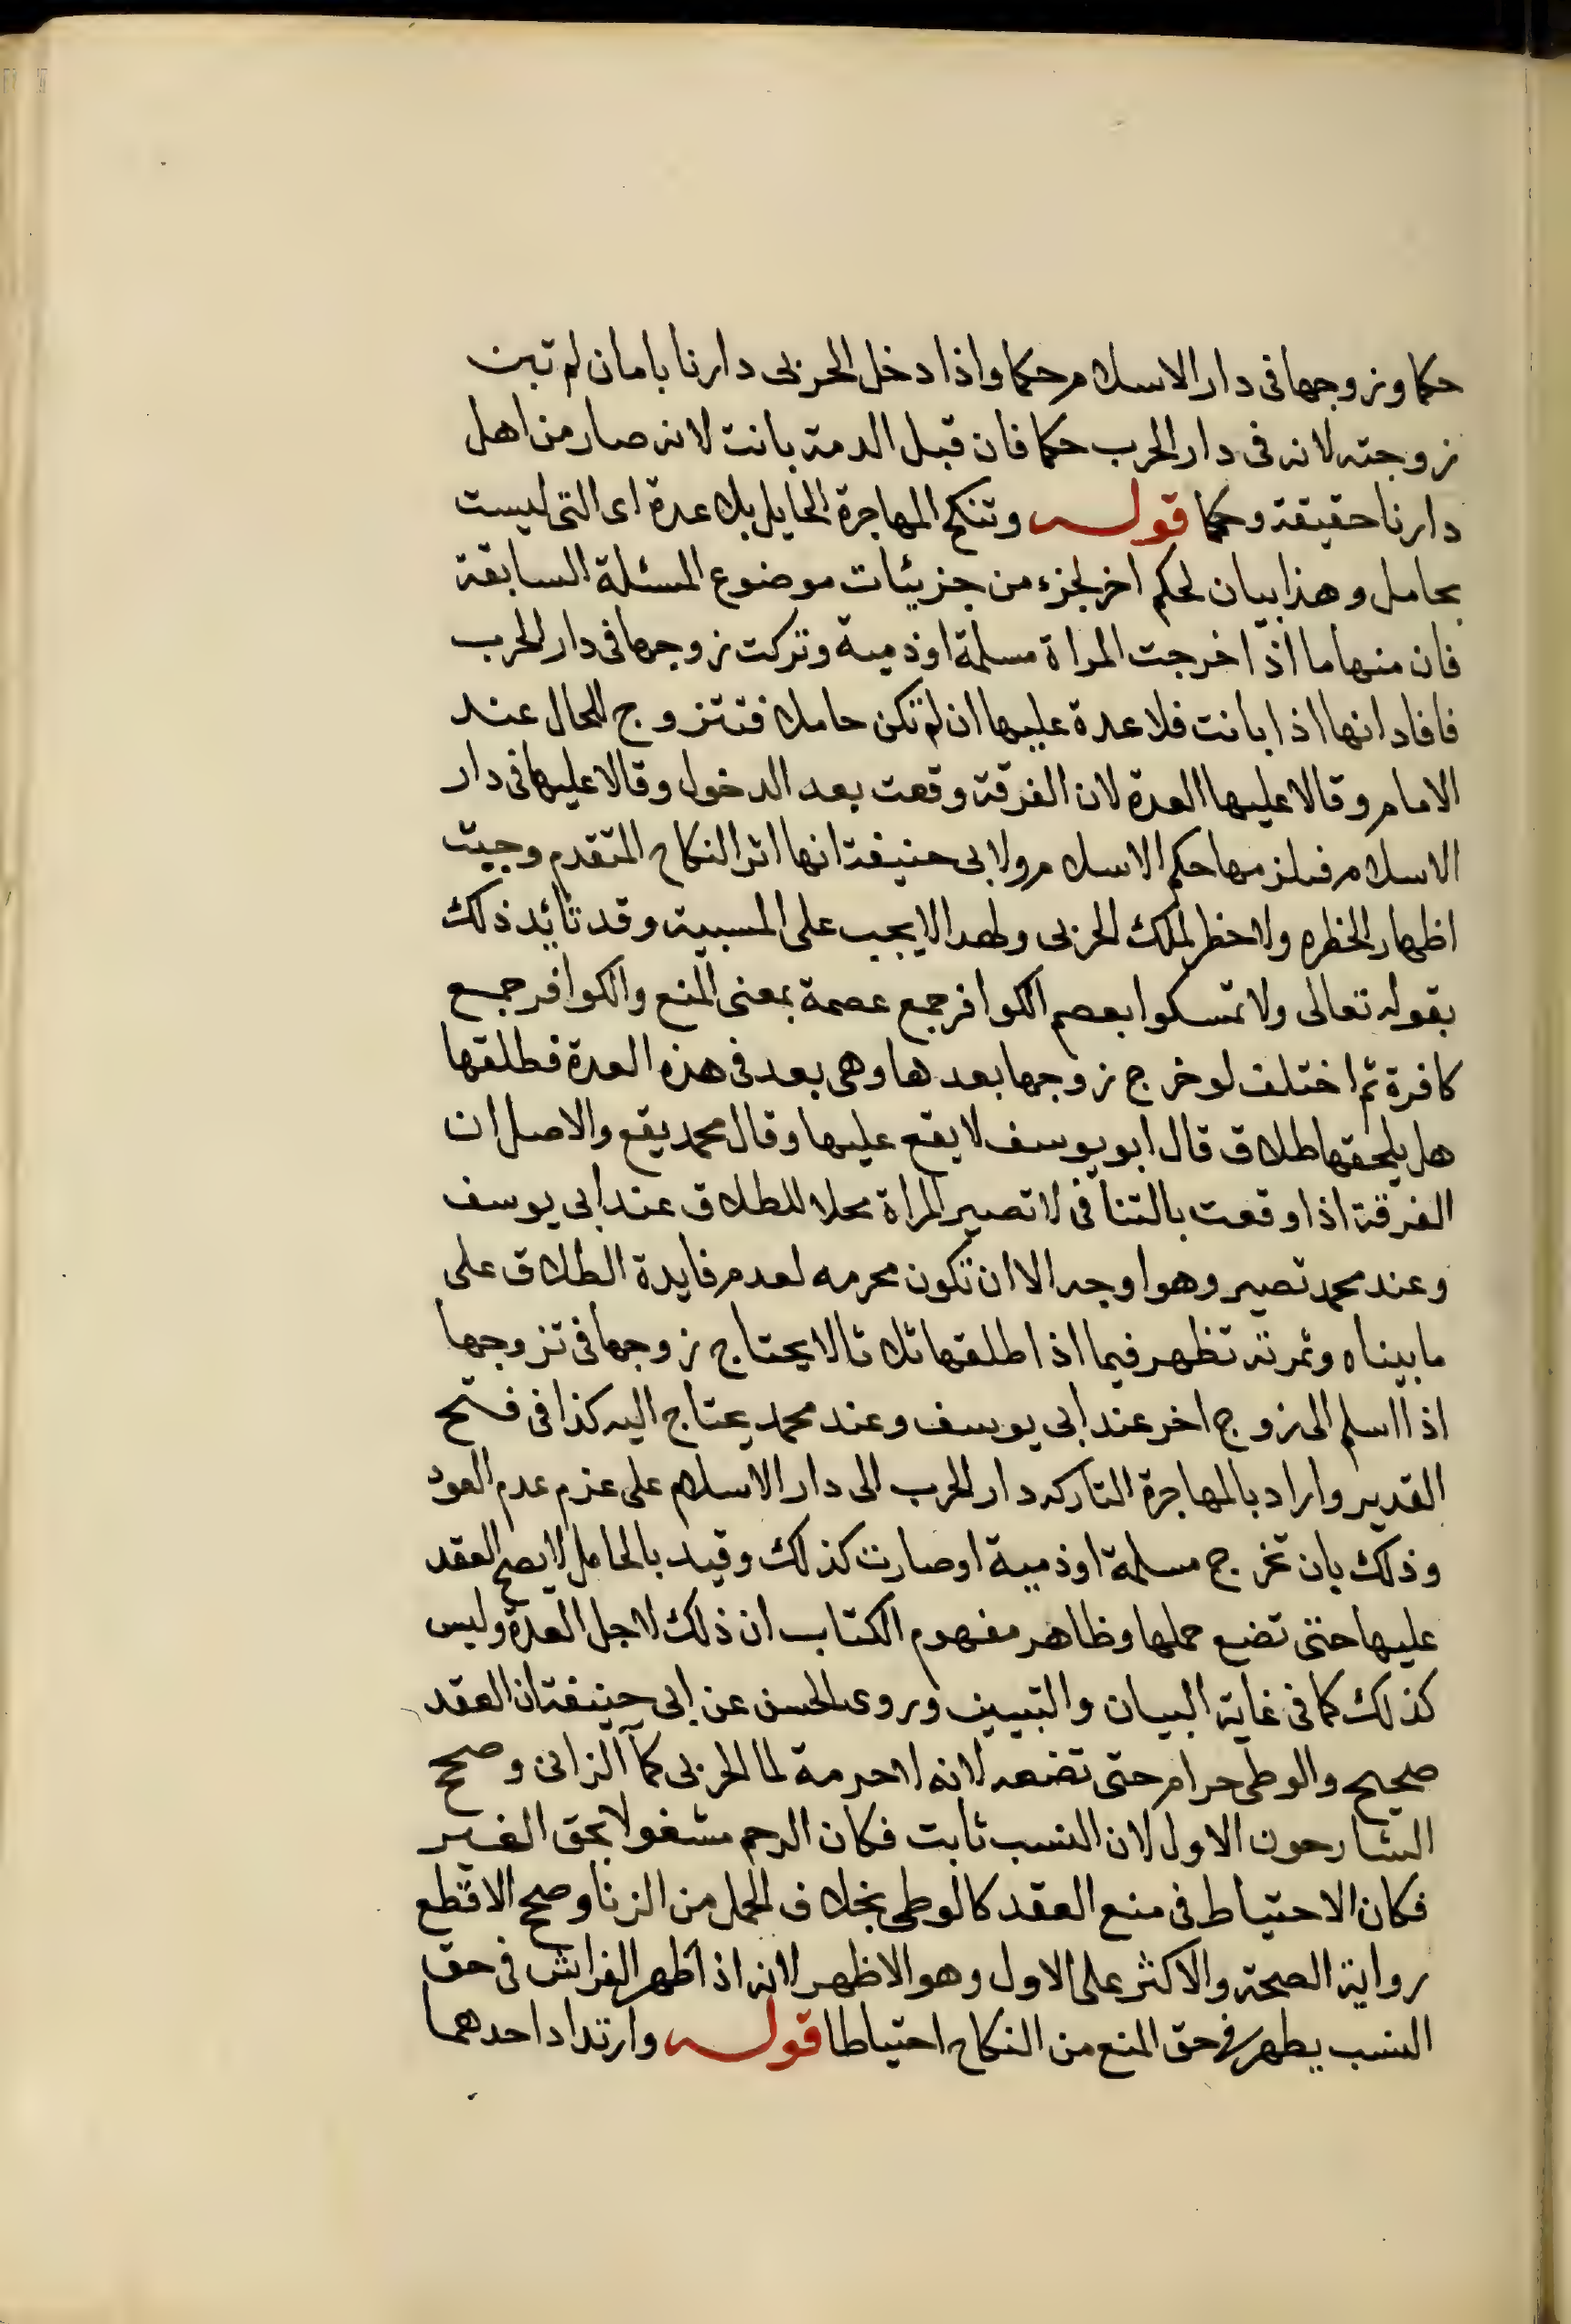 حكما وزوجها فى دار الاسلام حكما واذا دخل الحربى دارنا بامان لم تبن
زوجته لانه فى دار الحرب حكما فان قبل الدمة بانت لانه صار من اهل
دارنا حقيقة وحكما قوله وتنكح المهاجرة الحايل بلا عدة اى التى ليست
بحامل وهذا بيان لحكم اخر لجزء من جزيئات موضوع المسئلة السابقة
فان منها ما اذا خرجت المراة مسلمة او ذمية وتركت زوجها فى دار الحرب
فافاد انها اذا بانت فلا عدة عليها ان لم تكن حاملا فتتزوج للحال عند
الامام وقالا عليها العدة لان الفرقة وقعت بعد الدخول وقالا عليها فى دار
الاسلام فيلزمها حكم الاسلام ولابى حنيفة انها اثر النكاح المتقدم وجبت
اظهار الخطره ولا خطر لملك الحربى ولهدا لا يجب على المسبية وقد تائد ذلك
بقوله تعالى ولا تمسكوا بعصم الكوافر جمع عصمة بمعنى المنع والكوافر جمع
كافرة ثم اختلف لو خرج زوجها بعدها وهى بعد فى هذه العدة فطلقها
هل يلحقها طلاق قال ابو يوسف لا يقع عليها وقال محمد يقع والاصل ان
الفرقة اذا وقعت بالتنافى لا تصير المراة محلا للطلاق عند ابى يوسف
وعند محمد تصير وهو اوجه الا ان تكون محرمه لعدم فايدة الطلاق على
ما بيناه وثمرته تظهر فيما اذا طلقها ثلاثا لا يحتاج زوجها فى تزوجها
اذا اسلم الى زوج اخر عند ابى يوسف وعند محمد يحتاج اليه كذا فى فتح
القدير واراد بالمهاجرة التاركه دار الحرب الى دار الاسلام على عزم عدم العود
وذلك بان تخرج مسلمة او ذمية او صارت كذلك وقيد بالحامل لا يصح العقد
عليها حتى تضع حملها وظاهر مفهوم الكتاب ان ذلك لاجل العدة وليس
كذلك كما فى غاية البيان والتبيين وروى الحسن عن ابى حنيفة ان العقد
صحيح والوطى حرام حتى تضعه لانه لا حرمة لما الحربى كما الزانى وصحح
الشارحون الاول لان النسب ثابت فكان الرحم مشغولا بحق الغير
فكان الاحتياط فى منع العقد كالوطى بخلاف الحمل من الزنا وصحح الاقطع
رواية الصحة والاكثر على الاول وهو الاظهر لانه اذا ظهر الفراش فى حق
النسب يظهر فى حق المنع من النكاح احتياطا قوله وارتداد احدهما